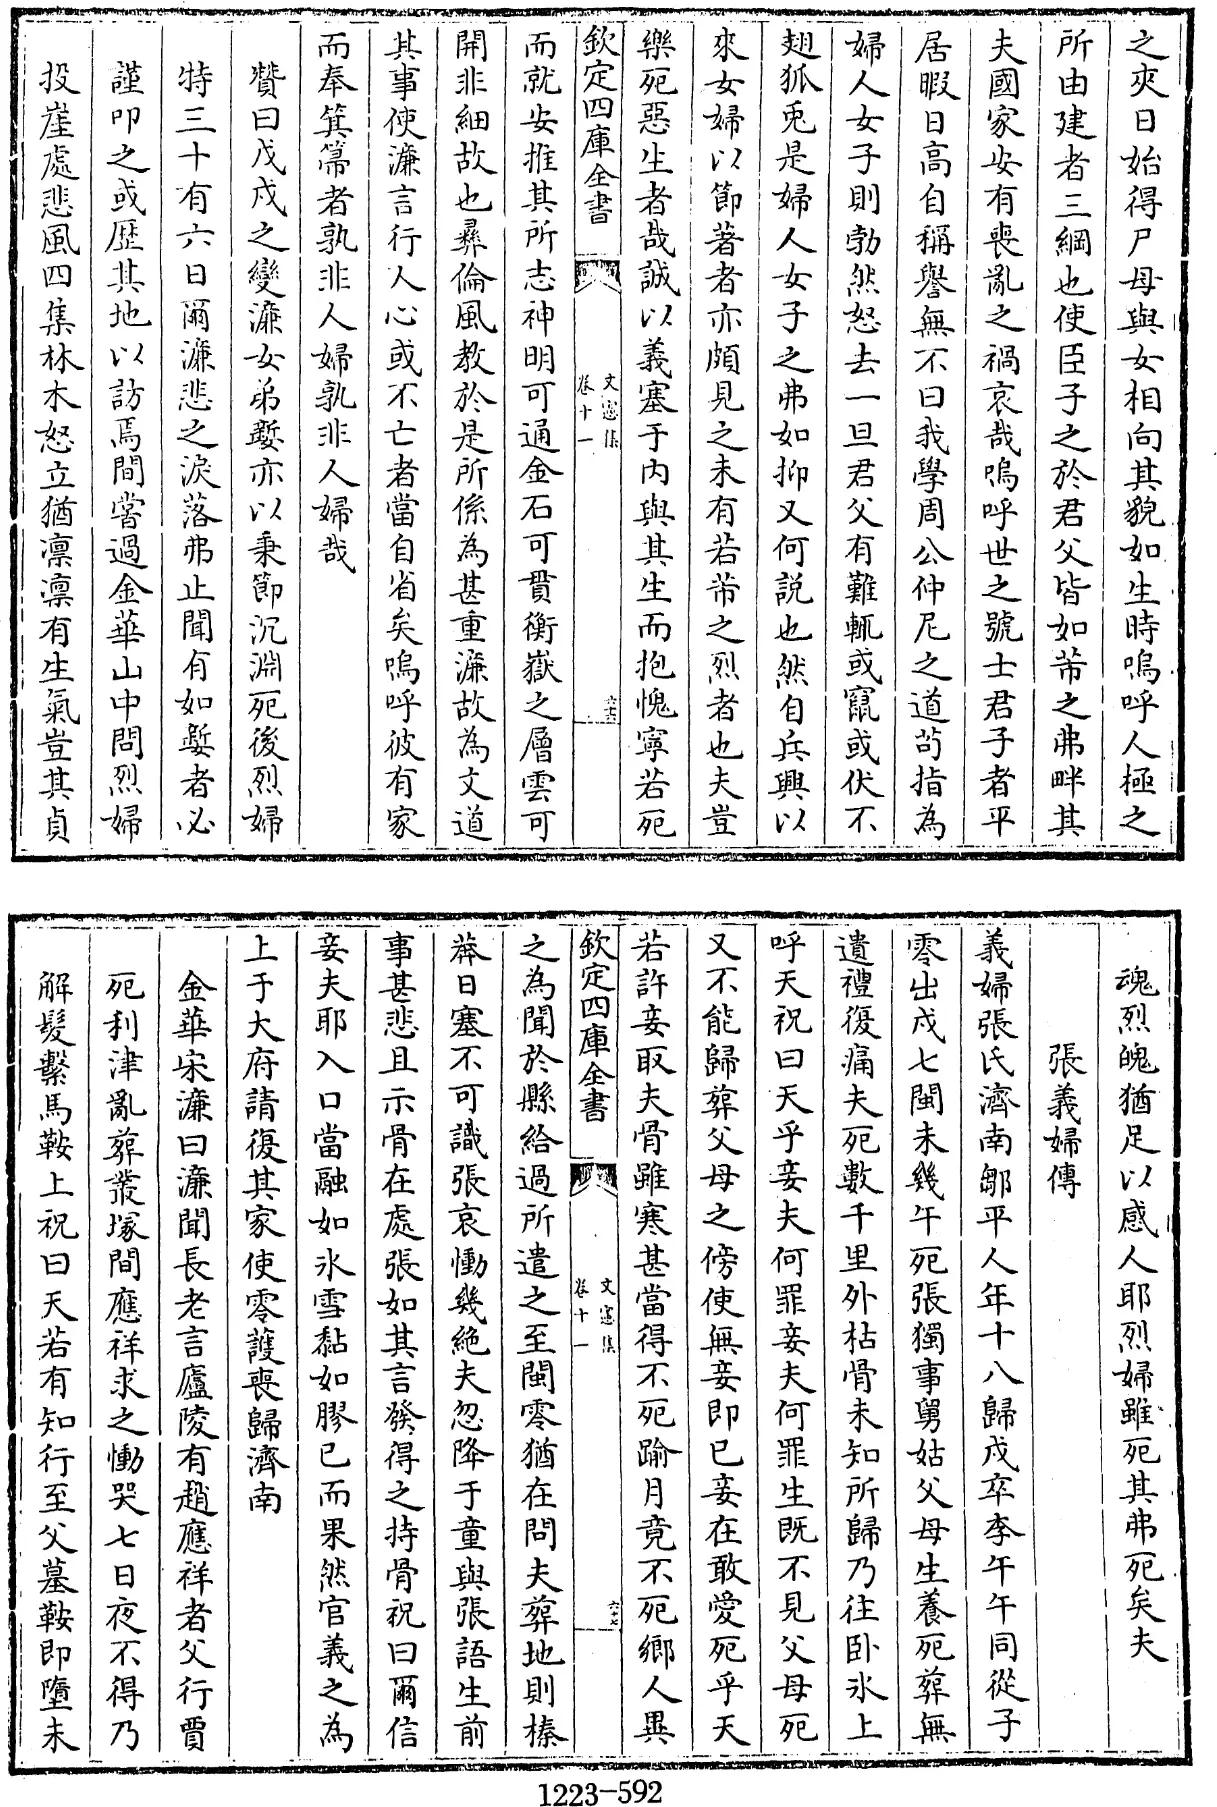 之夾日始得尸母與女相向其貌如生時嗚呼人極之
所由建者三綱也使臣子之於君父皆如芾之弗畔其
夫國家安有喪亂之禍哀哉嗚呼世之號士君子者平
居暇日高自稱譽無不曰我學周公仲尼之道苟指為
婦人女子則勃然怒去一旦君父有難輒或竄或伏不
翅狐兎是婦人女子之弗如抑又何説也然自兵興以
來女婦以節著者亦頗見之未有若芾之烈者也夫豈
樂死惡生者哉誠以義塞于内與其生而抱愧寧若死
欽定四庫全書
文憲集
卷十一
六十六
而就安推其所志神明可通金石可貫衡嶽之層雲可
開非細故也彞倫風教於是所係為甚重濂故為文道
其事使濂言行人心或不亡者當自省矣嗚呼彼有家
而奉箕箒者孰非人婦孰非人婦哉
贊曰戊戌之變濂女弟㜞亦以秉節沉淵死後烈婦
特三十有六日爾濂悲之淚落弗止聞有如㜞者必
謹叩之或歴其地以訪焉間嘗過金華山中問烈婦
投崖處悲風四集林木怒立猶凛凛有生氣豈其貞
魂烈魄猶足以感人耶烈婦雖死其弗死矣夫
張義婦傳
義婦張氏濟南鄒平人年十八歸戍卒李午午同從子
零出戍七閩未幾午死張獨事舅姑父母生養死葬無
遺禮復痛夫死數千里外枯骨未知所歸乃往卧氷上
呼天祝曰天乎妾夫何罪妾夫何罪生既不見父母死
又不能歸葬父母之傍使無妾即已妾在敢愛死乎天
若許妾取夫骨雖寒甚當得不死踰月竟不死鄉人異
欽定四庫全書
文憲集
卷十一
六十七
之為聞於縣給過所遣之至閩零猶在問夫葬地則榛
莽日塞不可識張哀慟幾絶夫忽降于童與張語生前
事甚悲且示骨在處張如其言發得之持骨祝曰爾信
妾夫耶入口當融如氷雪黏如膠已而果然官義之為
上于大府請復其家使零䕶喪歸濟南
金華宋濂曰濂聞長老言廬陵有趙應祥者父行賈
死利津亂葬叢塚間應祥求之慟哭七日夜不得乃
解髮繫馬鞍上祝曰天若有知行至父墓鞍即墮未
1223-592